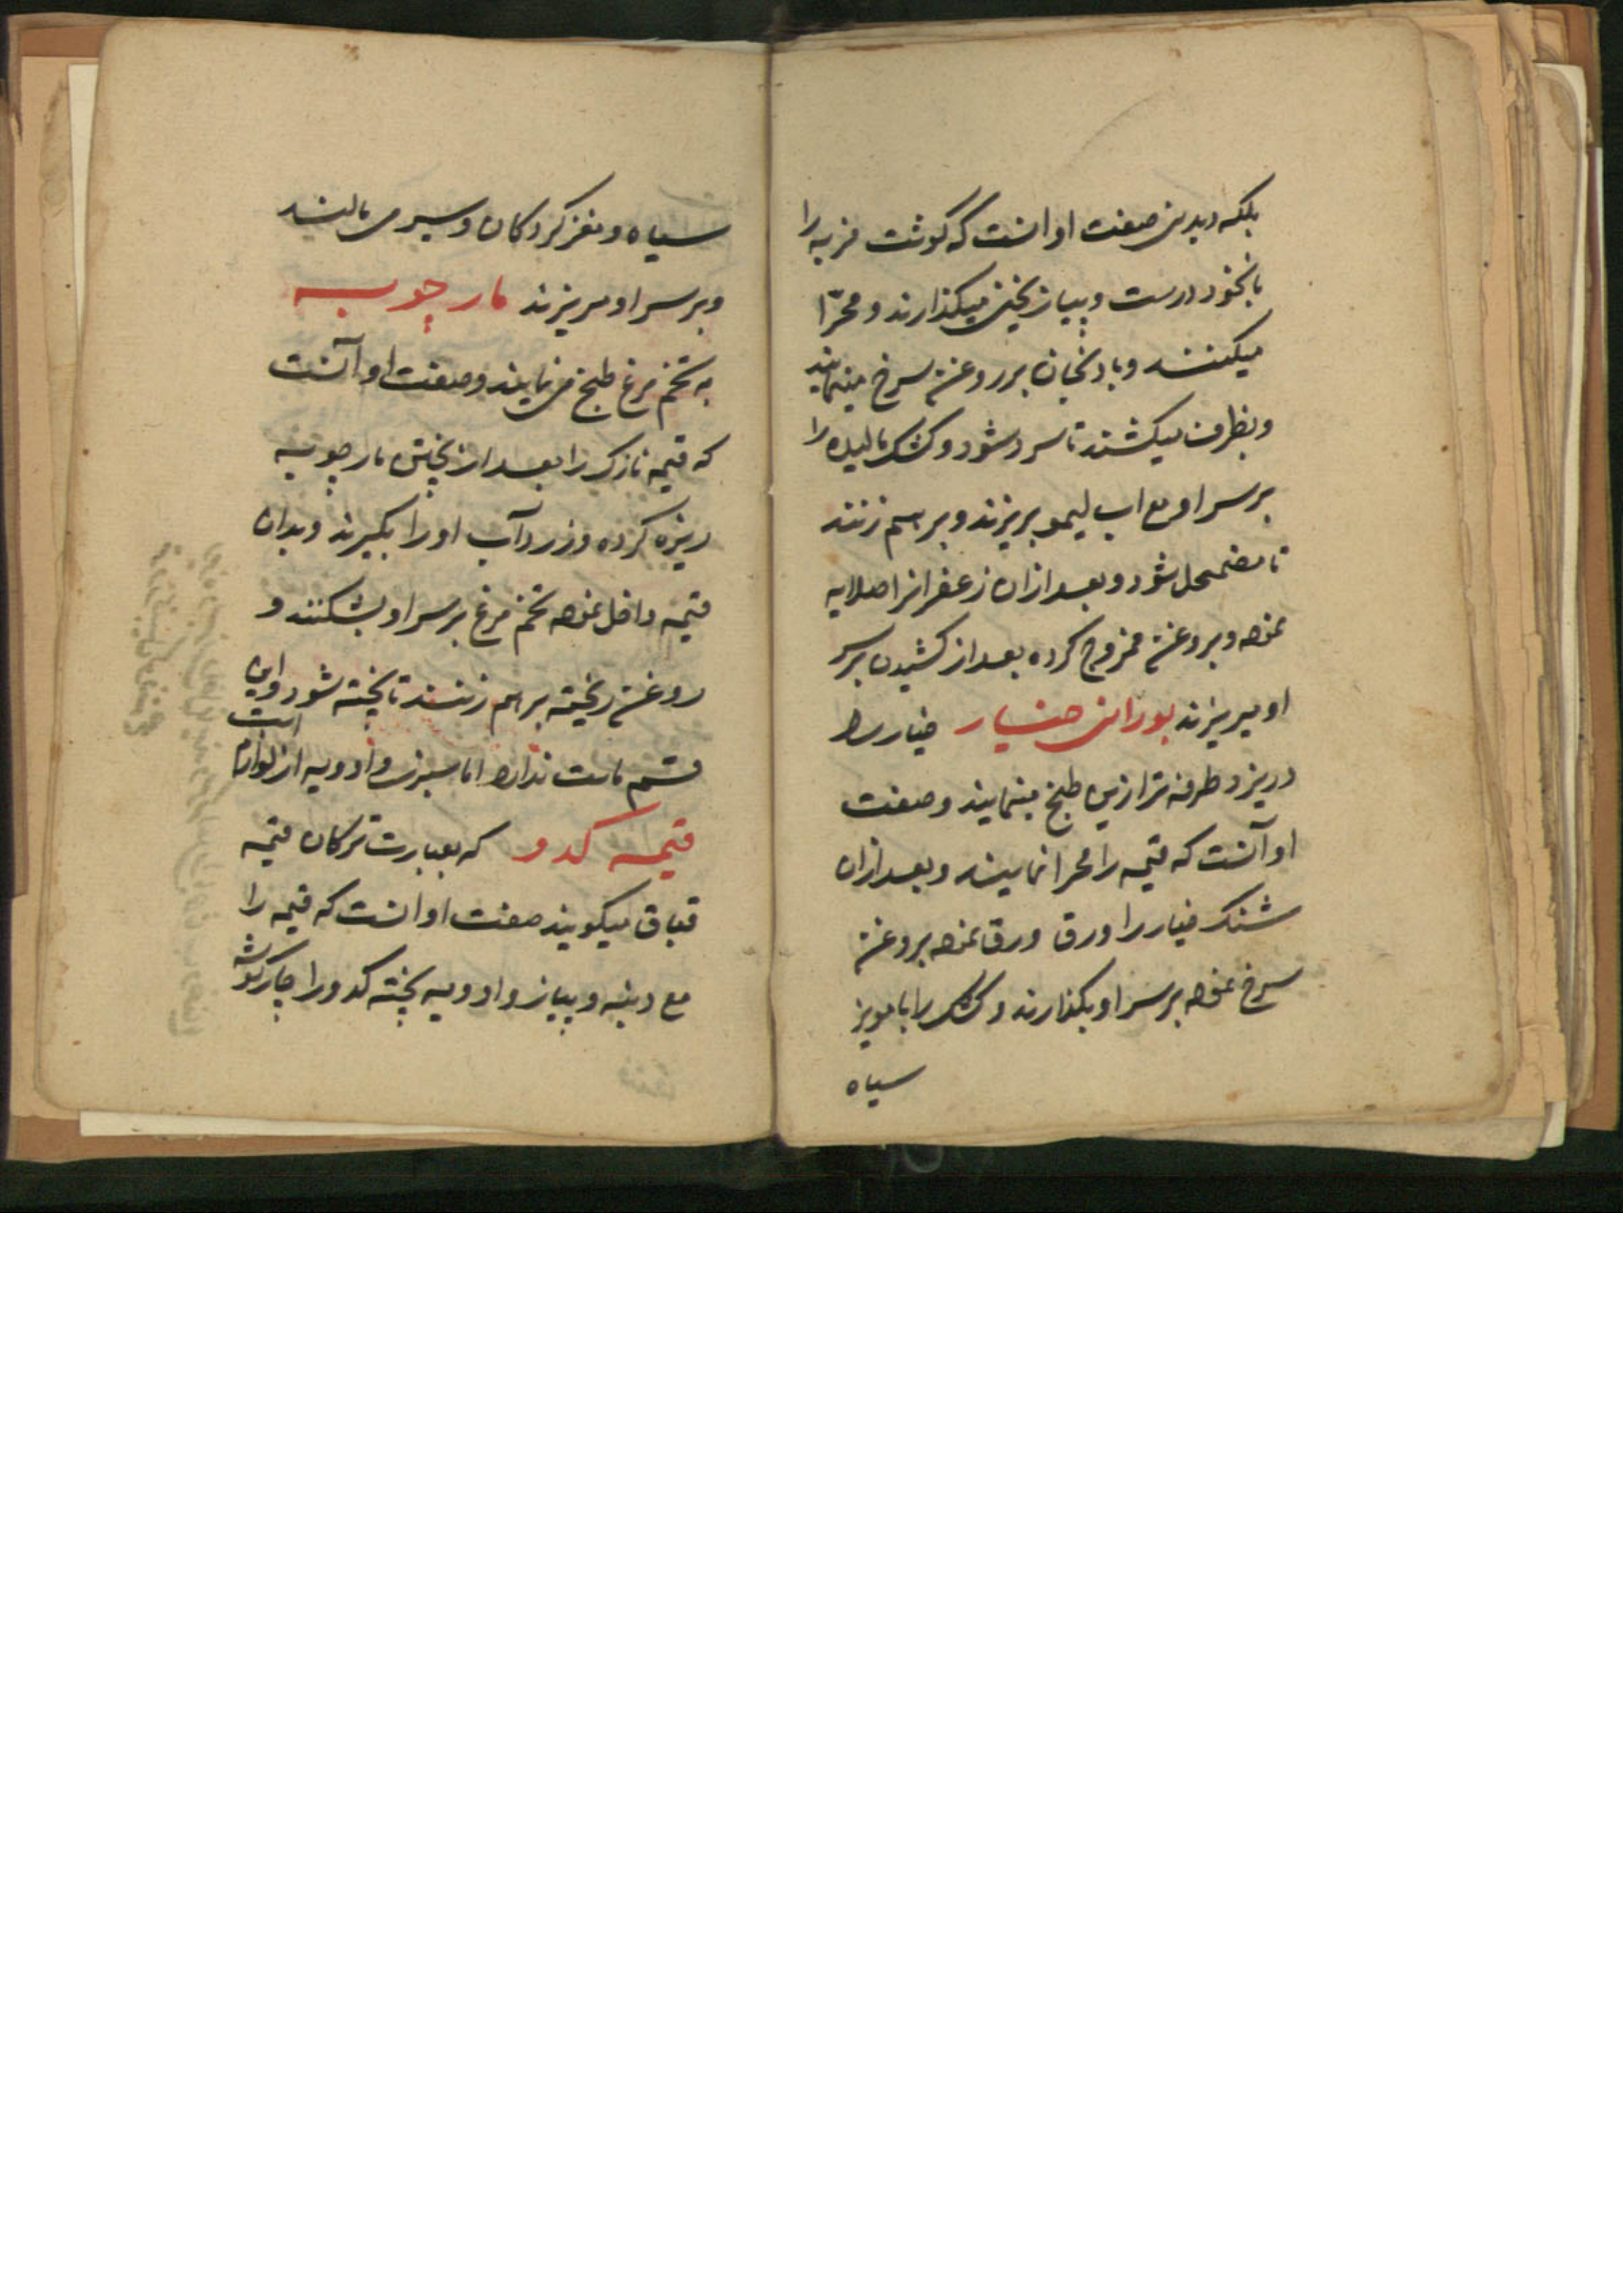 بلکه دیدنی صفت او انست که کوشت فربه را
با نخود درست و پیاز یخنی میکذارند و محرّا
میکنند و بادنجان بر روغن سرخ مینمایند
و بظرف میکشند تا سرد شود و کشک مالیده را
بر سر او مع اب لیمو بریزند و بر هم زنند
تا مضمحل شود و بعد ازان زعفرانرا صلایه
نموده و بروغن ممزوج کرده بعد از کشیدن بر سر
او میریزند بورانی خیار خیار را
در یزد طرفه تر ازین طبخ مینمایند و صفت
او آنست که قیمه را محرا نمایند و بعد ازان
خیار را ورق ورق نموده بروغن
سرخ نموده بر سر او بکذارند و کشک را با مویز
سیاه
سیاه و مغز کردکان و سیر می مالند
و بر سر او میریزند مارچوبه
به تخم مرغ طبخ می نمایند و صفت او آنست
که قیمه نازک را بعد از پختن مارچوبه
ریزه کرده و زرد آب او را بکیرند و بدان
قیمه داخل نموده تخم مرغ بر سر او بشکنند و
روغن ریخته بر هم زنند تا پخته شود و این
قسم ماست ندارد اما سبزی و ادویه از لوازم است
قیمه کدو که بعبارت ترکان قیمه
قباق میکویند صفت او انست که قیمه را
مع دنبه و پیاز و ادویه پخته کدو را چارکوشه